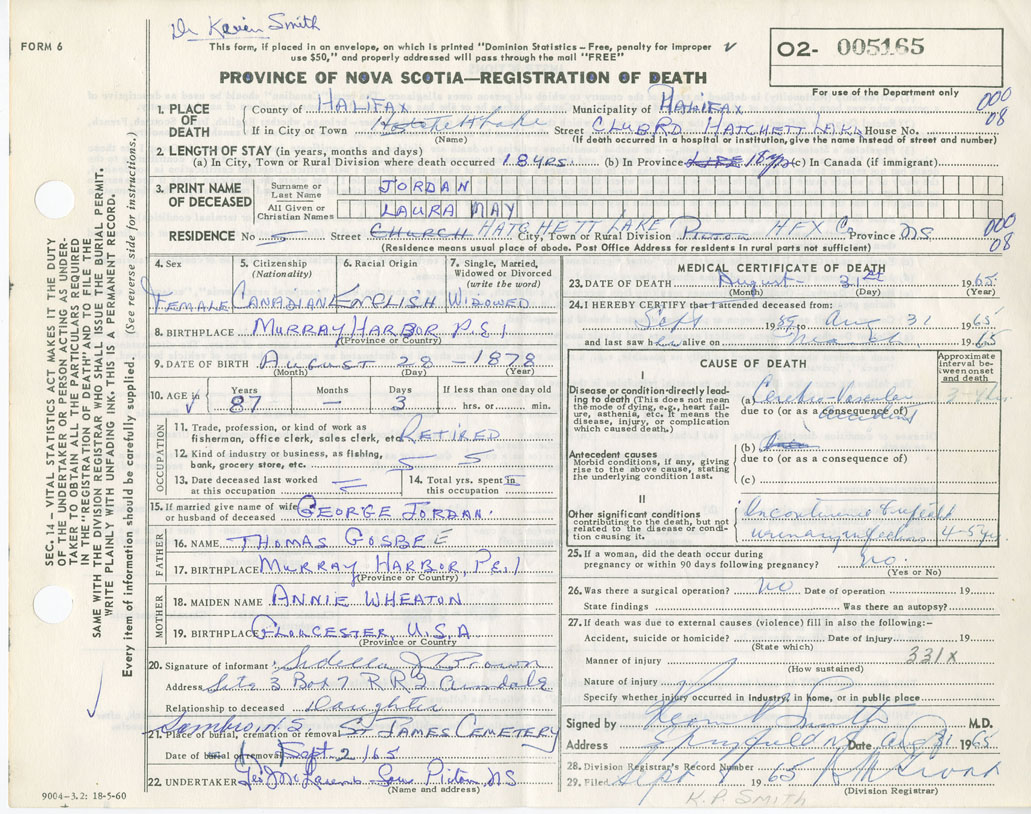 Dr Karen Smith
FORM 6
This form, if placed in an envelope, on which is printed "Dominion Statistics – Free, penalty for improper
use $50," and properly addressed will pass through the mail "FREE"
O2- 005165
PROVINCE OF NOVA SCOTIA—REGISTRATION OF DEATH
For use of the Department only
000
08
1. PLACE OF DEATH
County of HALIFAX Municipality of HALIFAX
If in City or Town Street CLUB RD HATCHETT LAKE House No.
(Name) (If death occurred in a hospital or institution, give the name instead of street and number)
2. LENGTH OF STAY (in years, months and days)
(a) In City, Town or Rural Division where death occurred 18 YRS. (b) In Province LIFE 18 yrs (c) In Canada (if immigrant)
3. PRINT NAME OF DECEASED
Surname or Last Name JORDAN
All Given or Christian Names LAURA MAY
000
08
RESIDENCE No Street CHURCH HATCHETT LAKE City, Town or Rural Division Pictou HFX Co. Province NS
(Residence means usual place of abode. Post Office Address for residents in rural parts not sufficient)
4. Sex
FEMALE
5. Citizenship (Nationality)
CANADIAN
6. Racial Origin
ENGLISH
7. Single, Married, Widowed or Divorced (write the word)
WIDOWED
8. BIRTHPLACE MURRAY HARBOR P.E.I
(Province or Country)
9. DATE OF BIRTH AUGUST 28 – 1878
(Month) (Day) (Year)
10. AGE in
Years 87
Months –
Days 3
If less than one day old
hrs. or min.
OCCUPATION
11. Trade, profession, or kind of work as
fisherman, office clerk, sales clerk, etc. RETIRED
12. Kind of industry or business, as fishing,
bank, grocery store, etc.
13. Date deceased last worked
at this occupation
14. Total yrs. spent in
this occupation
15. If married give name of wife
or husband of deceased GEORGE JORDAN.
FATHER
16. NAME THOMAS GOSBEE
17. BIRTHPLACE MURRAY HARBOR, PE.I
(Province or Country)
MOTHER
18. MAIDEN NAME ANNIE WHEATON
19. BIRTHPLACE GLOUCESTER, U.S.A
(Province or Country)
20. Signature of informant: Brown
Address Site 3 Box 7 RR2 Armdale
Relationship to deceased Daughter
Sambro N.S
21. Place of burial, cremation or removal ST JAMES CEMETERY
Date of burial or removal Sept. 2/65
22. UNDERTAKER Pictou, NS
(Name and address)
9004-3.2: 18-5-60
MEDICAL CERTIFICATE OF DEATH
23. DATE OF DEATH August 31st 1965
(Month) (Day) (Year)
24. I HEREBY CERTIFY that I attended deceased from:
Sept 1959 to Aug 31 1965
and last saw her alive on March 1965
CAUSE OF DEATH
Approximate interval between onset and death
I
Disease or condition directly leading to death (This does not mean the mode of dying, e.g., heart failure, asthenia, etc. It means the disease, injury, or complication which caused death.)
(a) Cerebro-Vascular
due to (or as a consequence of) accident
Antecedent causes
Morbid conditions, if any, giving rise to the above cause, stating the underlying condition last.
(b)
due to (or as a consequence of)
(c)
II
Other significant conditions
contributing to the death, but not related to the disease or condition causing it.
Incontinence
urinary 4-5 yr.
25. If a woman, did the death occur during
pregnancy or within 90 days following pregnancy? no.
(Yes or No)
26. Was there a surgical operation? no Date of operation 19
State findings Was there an autopsy?
27. If death was due to external causes (violence) fill in also the following:–
Accident, suicide or homicide? Date of injury 19
(State which)
Manner of injury 331x
(How sustained)
Nature of injury
Specify whether injury occurred in industry, in home, or in public place
Signed by Smith M.D.
Address Springfield NS Date Aug 31 1965
28. Division Registrar's Record Number
29. Filed Sept 8 1965
(Division Registrar)
K.P. SMITH
SEC. 14 – VITAL STATISTICS ACT MAKES IT THE DUTY
OF THE UNDERTAKER OR PERSON ACTING AS UNDER-
TAKER TO OBTAIN ALL THE PARTICULARS REQUIRED
IN THE "REGISTRATION OF DEATH" AND TO FILE THE
SAME WITH THE DIVISION REGISTRAR WHO SHALL ISSUE THE BURIAL PERMIT.
WRITE PLAINLY WITH UNFADING INK. THIS IS A PERMANENT RECORD.
Every item of information should be carefully supplied. (See reverse side for instructions.)